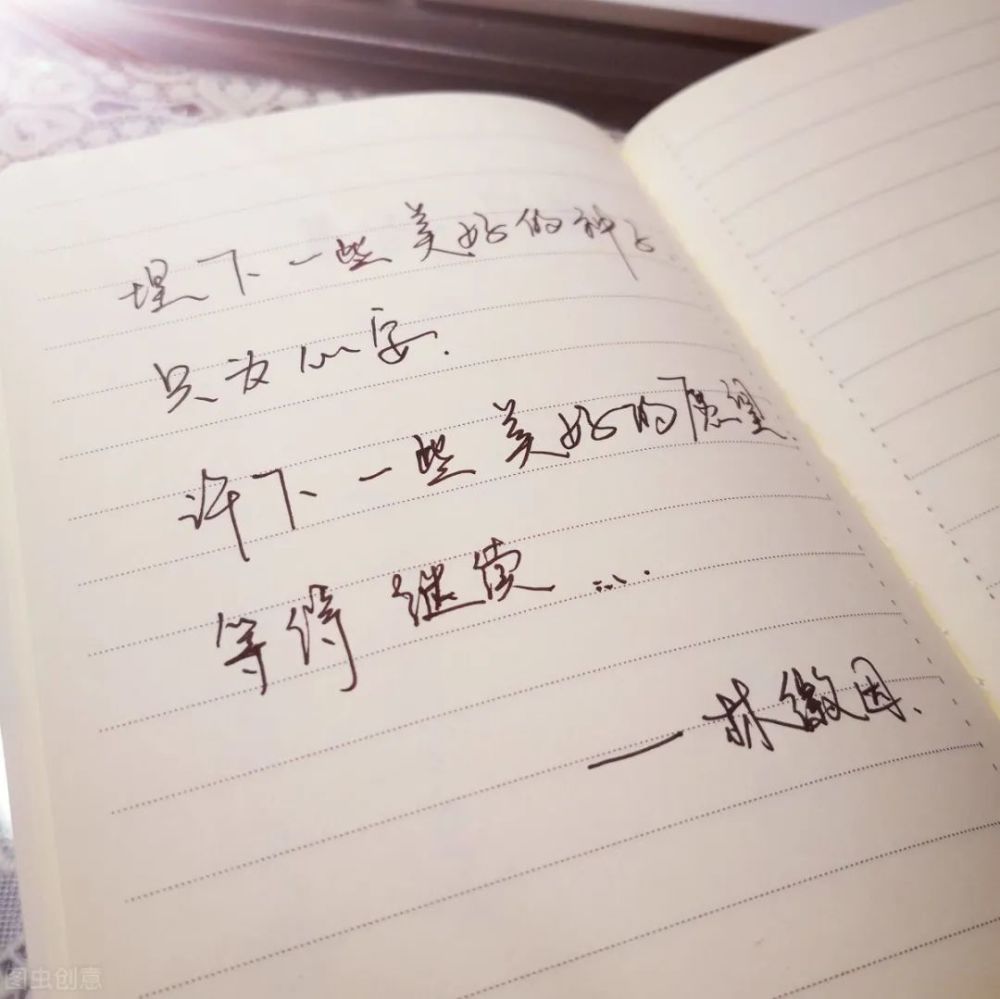 埋下一些美好的种子
只为心安.
许下一些美好的愿望.
等待继续……
——林徽因.
图虫创意